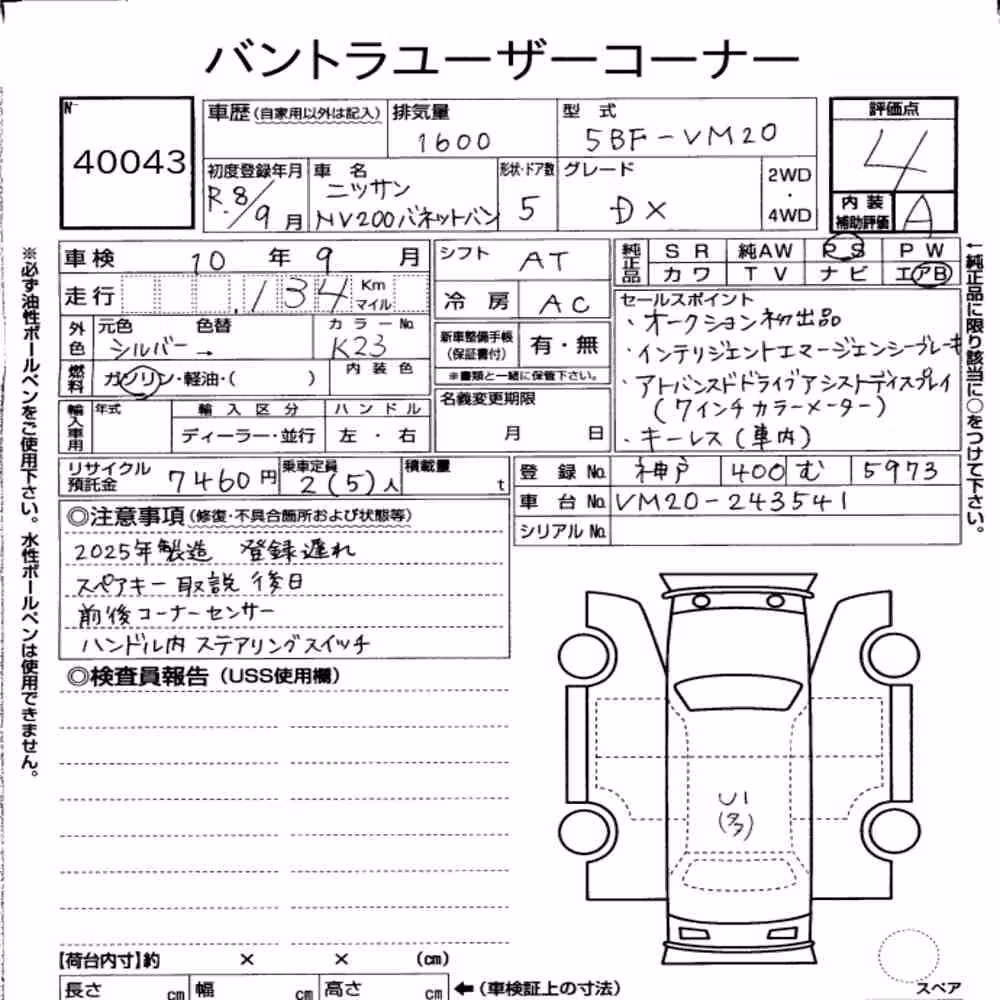 バントラユーザーコーナー
No
40043
車歴(自家用以外は記入)
排気量
1600
型 式
5BF-VM20
評価点
4
初度登録年月
R.8/9月
車 名
ニッサン
NV200バネットバン
形状・ドア数
5
グレード
DX
2WD
・
4WD
内 装
補助評価
A
車検 10 年 9 月
シフト AT
純正品
S R 純AW P S P W
カワ T V ナビ エアB
走行 .134 Km
マイル
冷 房 AC
セールスポイント
・オークション初出品
・インテリジェントエマージェンシーブレーキ
・アドバンスドドライブアシストディスプレイ
(7インチカラーメーター)
・キーレス(車内)
外色
元色 色替
シルバー →
カラーNo.
K23
新車整備手帳
(保証書付)
有・無
※書類と一緒に保管下さい。
燃料
ガソリン・軽油・( )
内 装 色
名義変更期限
月 日
輸入車用
年式
輸 入 区 分
ハ ン ド ル
ディーラー・並行
左 ・ 右
リサイクル
預託金
7460円
乗車定員
2(5)人
積載量
t
登 録 No. 神戸 400 む 5973
車 台 No. VM20-243541
シリアル No.
◎注意事項(修復・不具合箇所および状態等)
2025年製造 登録遅れ
スペアキー 取説 後日
前後コーナーセンサー
ハンドル内 ステアリングスイッチ
◎検査員報告(USS使用欄)
U1
(多)
【荷台内寸】約 × × (cm)
長さ cm 幅 cm 高さ cm ←(車検証上の寸法)
スペア
※必ず油性ボールペンをご使用下さい。水性ボールペンは使用できません。
←純正品に限り該当に○をつけて下さい。